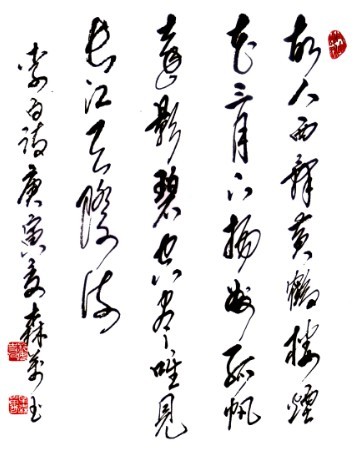 故人西辭黃鶴樓煙
花三月下揚州孤帆
遠影碧空盡唯見
長江天際流
李白詩庚寅夏森